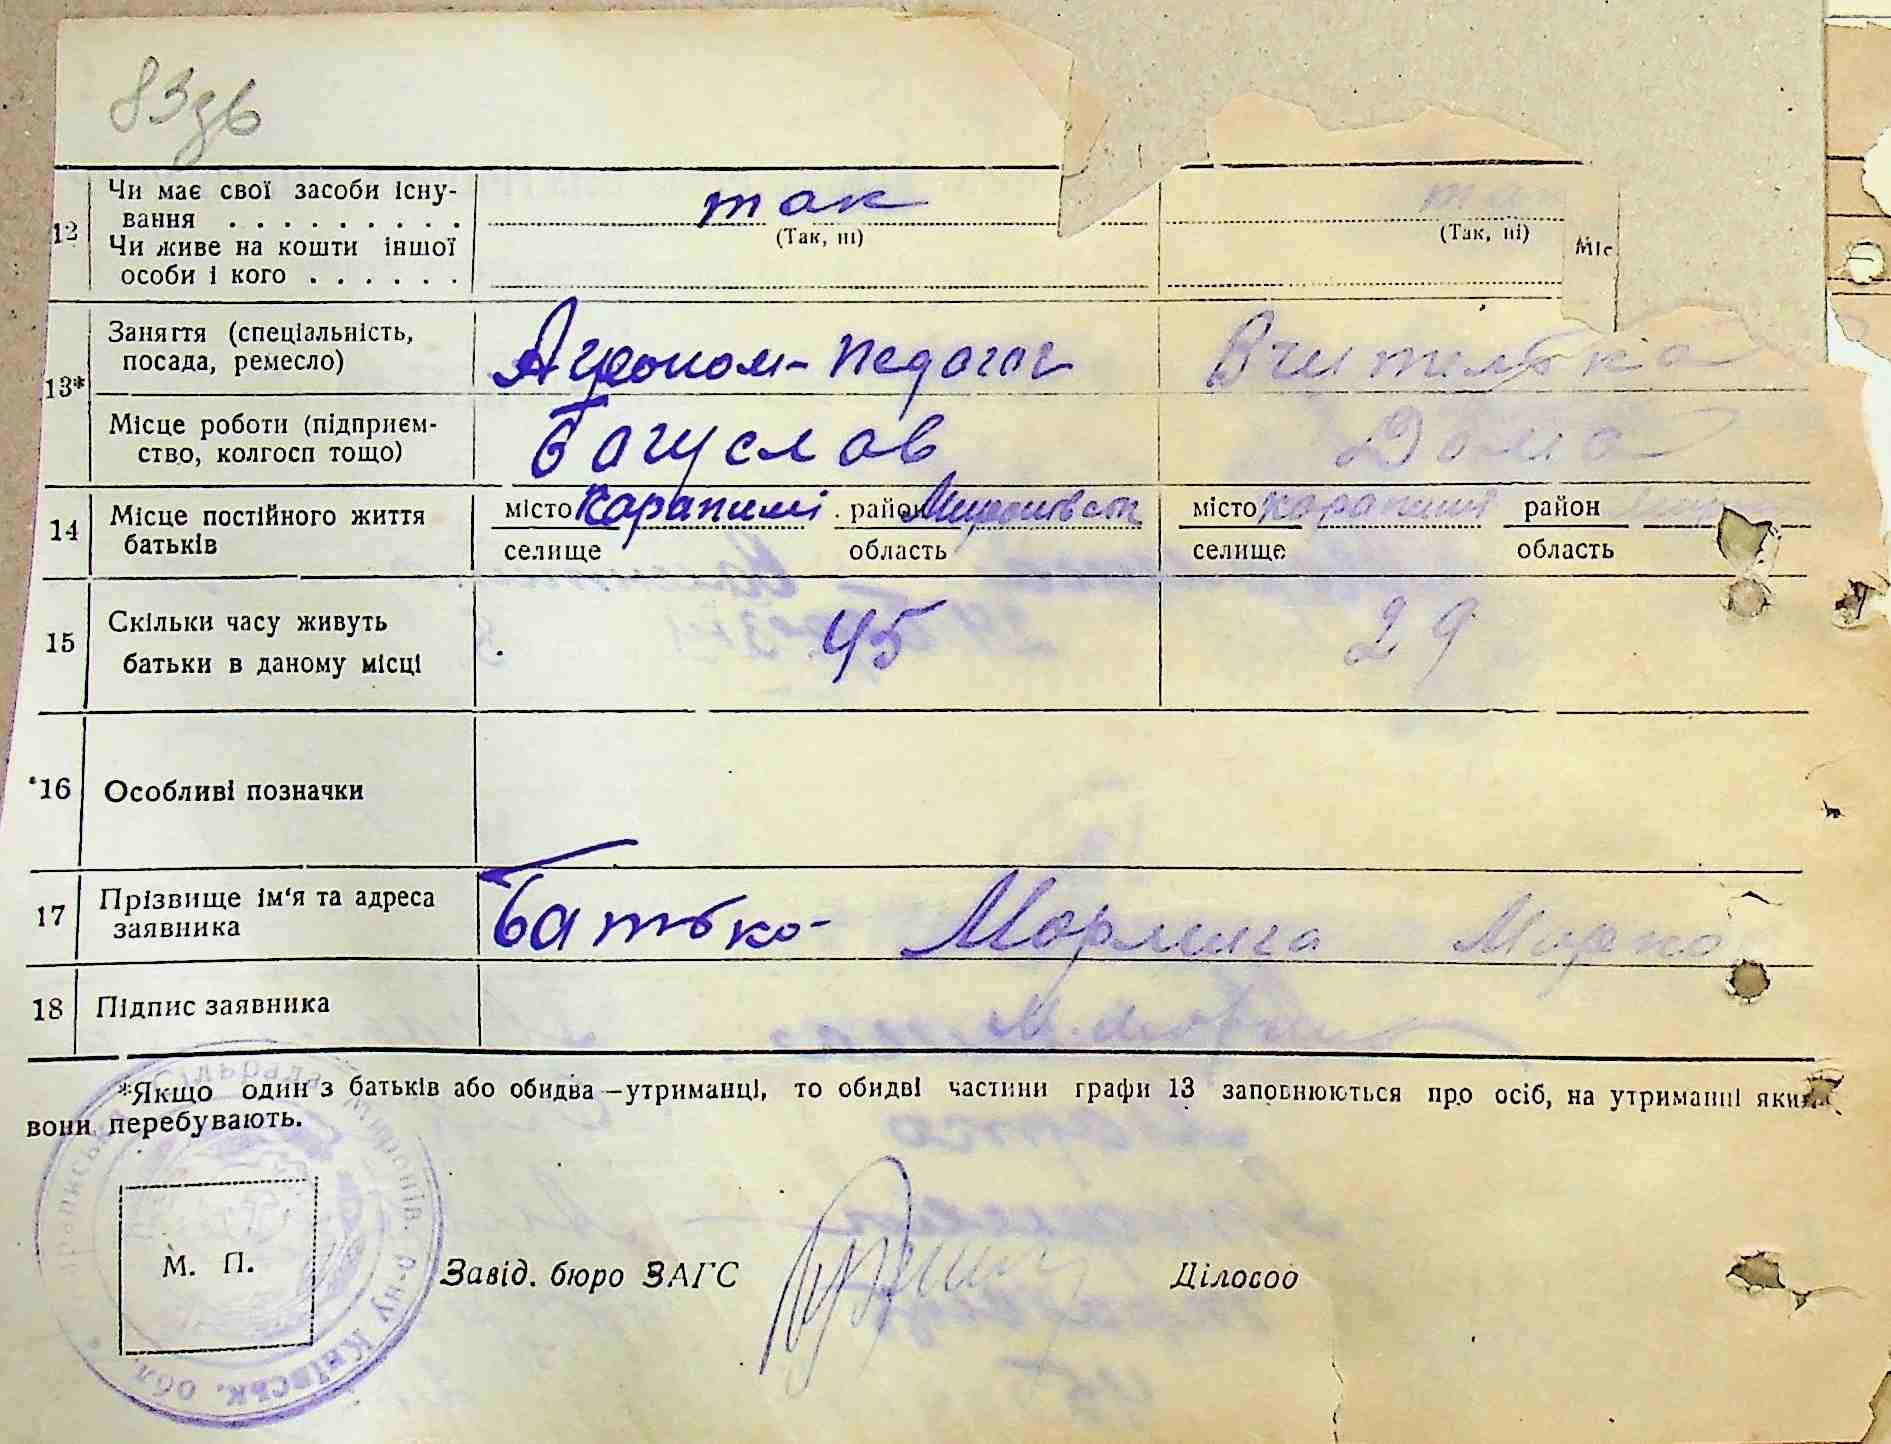 83зв
12 Чи має свої засоби існу-
вання . . . . . . . . . так так
(Так, ні) (Так, ні)
Чи живе на кошти іншої Міс
особи і кого . . . . . .
13* Заняття (спеціальність,
посада, ремесло) Агроном-педагог Вчителька
Місце роботи (підприєм-
ство, колгосп тощо) Багуслав Дома
14 Місце постійного життя
батьків місто Карапиші район Миронівськ місто Карапиші район
селище область селище область
15 Скільки часу живуть
батьки в даному місці 45 29
*16 Особливі позначки
17 Прізвище ім'я та адреса
заявника Батько-
18 Підпис заявника
*Якщо один з батьків або обидва—утриманці, то обидві частини графи 13 заповнюються про осіб, на утриманні яких
вони перебувають.
сільрада Миронів. р-ну Київськ. обл.
М. П.
Завід. бюро ЗАГС Діловоо